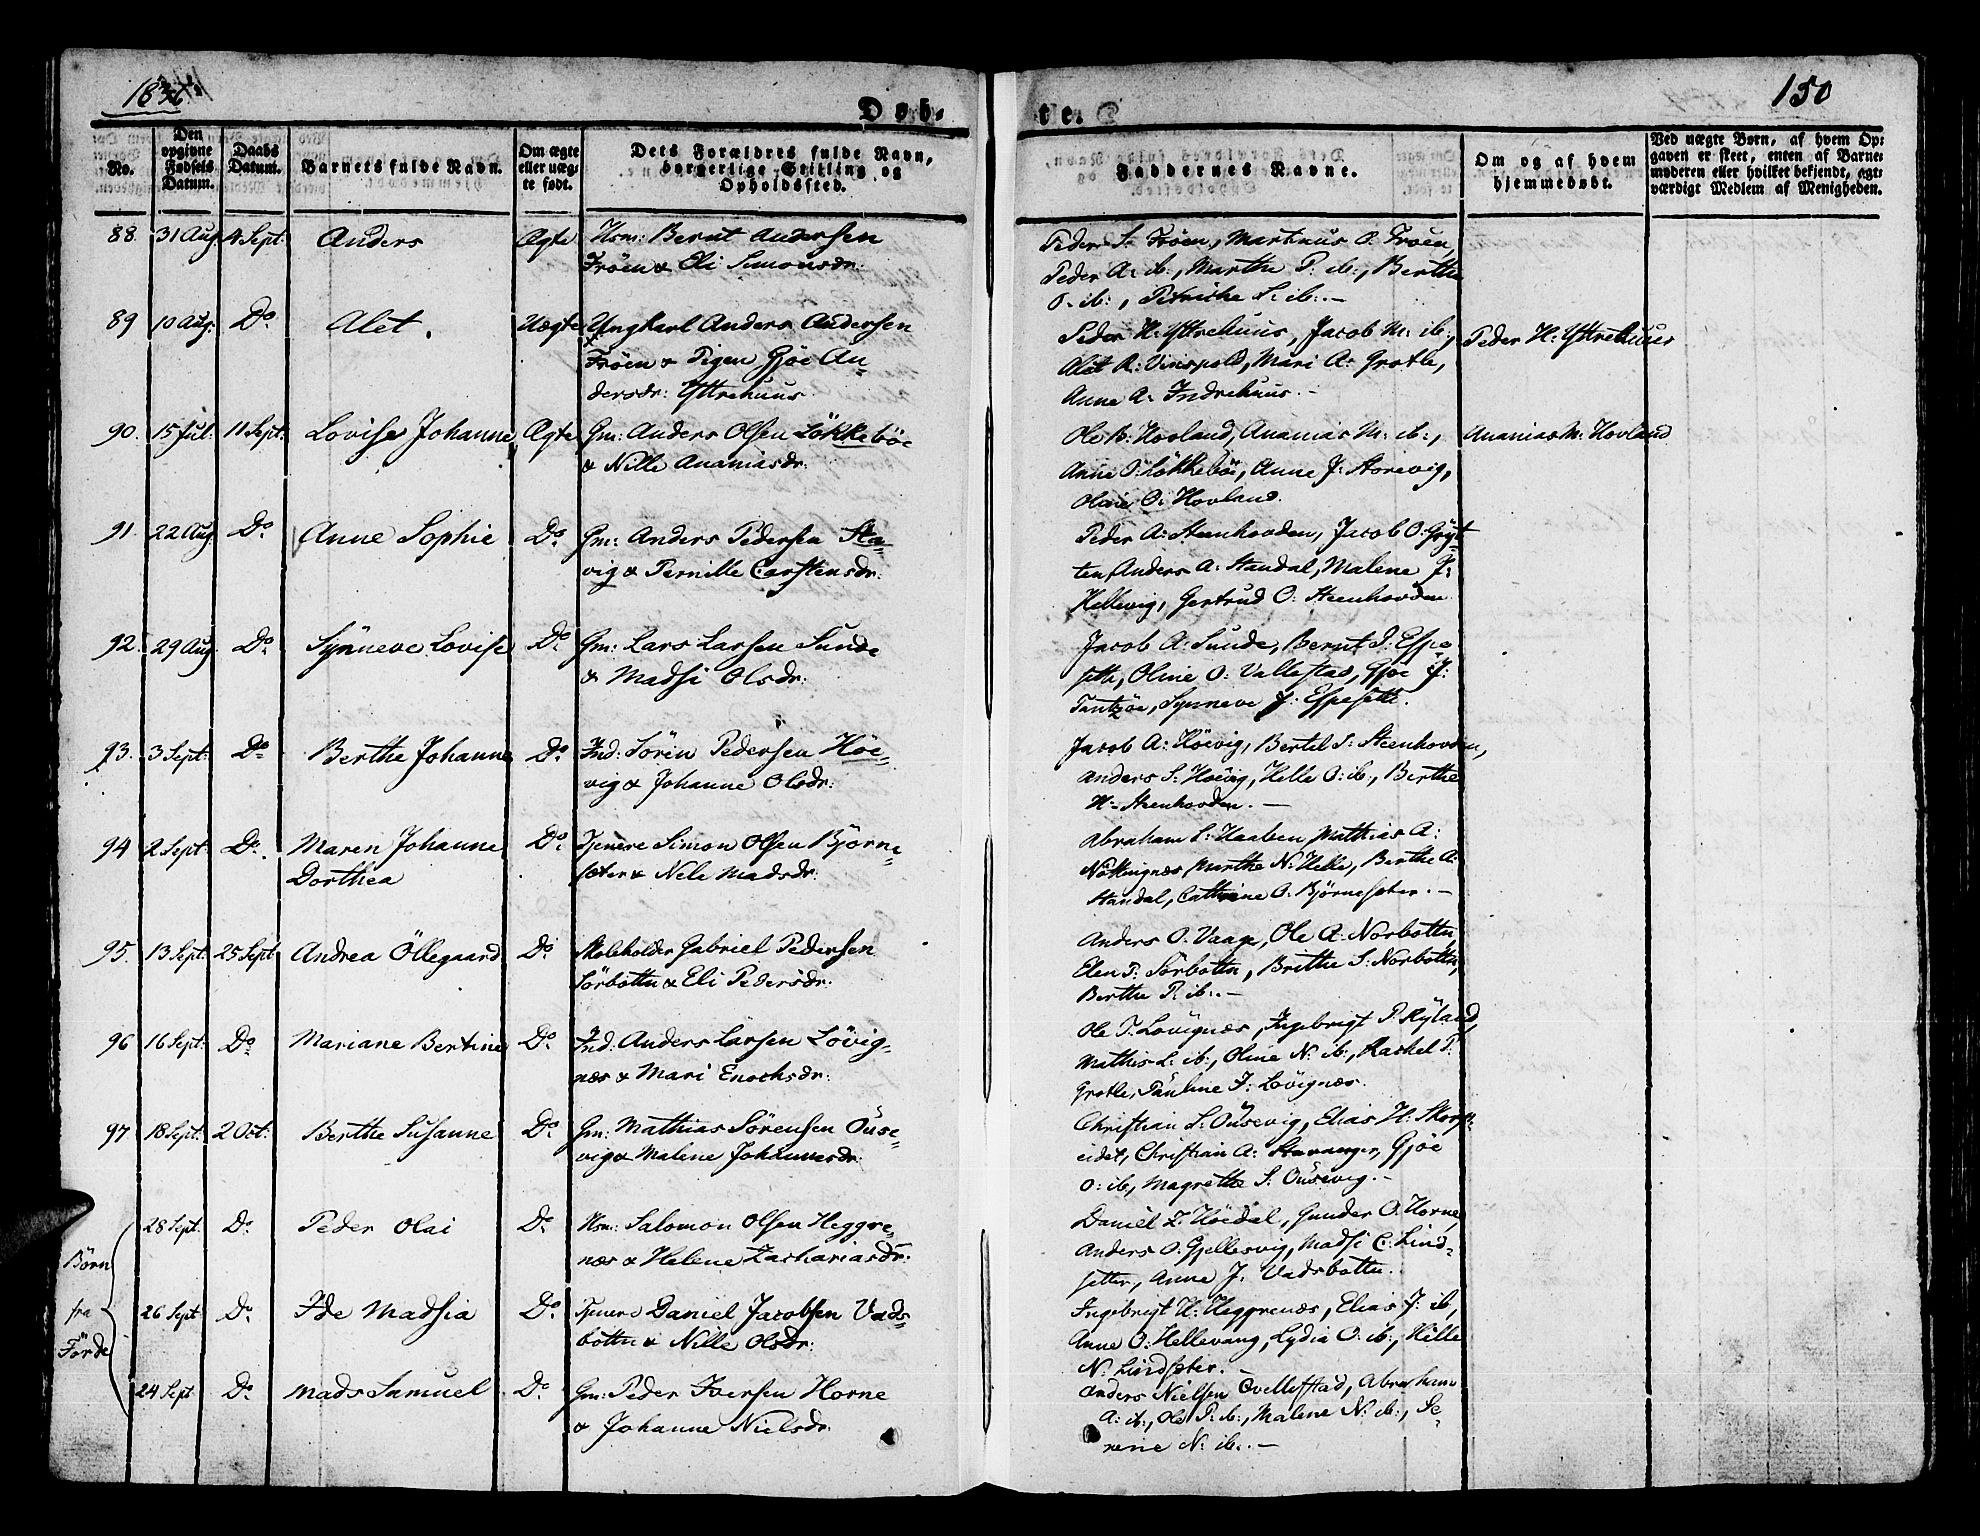 150
Døb-
te.
No.
Den opgivne Fødsels Datum.
Daabs Datum.
Barnets fulde Navn.
Om ægte eller uægte født.
Dets Forældres fulde Navn, borgerlige Stilling og Opholdssted.
Faddernes Navne.
Om og af hvem hjemmedøbt.
Ved uægte Børn, af hvem Opgaven er skeet, enten af Barnemoderen eller hvilket bekjendt, agtværdigt Medlem af Menigheden.
88. 31 Aug 4 Sept: Anders Ægte Hsm: Bernt Andersen
Fröen & Eli Simonsdr:
Peder S. Fröen, Martinus O. Fröen,
Peder A: ib:, Marthe P: ib:, Berthe
O. ib:, Petriche S: ib:. —
89 10 Aug: Do Alet. Uægte Ungkarl Anders Andersen
Fröen & Pigen Gjöe An-
dersdr: Yttrehuus.
Peder H: Yttrehuus, Jacob M: ib:,
Alet R: Vinspold, Mari A: Grotle,
Anne A: Indrehuus. —
Peder H: Yttrehuus
90. 15 Jul: 11 Sept: Lovise Johanne Ægte Gm: Anders Olsen Lökkeböe
& Nille Ananiasdr:
Ole B: Hovland, Ananias M: ib:,
Anne O: Lökkeböe, Anne J: Storevig,
Olaie O: Hovland.
Ananias M: Hovland
91. 22 Aug Do Anne Sophie Do Gm: Anders Pedersen Sta-
vig & Pernille Carstensdr:
Peder A: Steenhovden, Jacob O: Gryt-
ten, Anders A: Standal, Malene J:
Hellevig, Gertrud O: Steenhovden
92. 29 Aug Do Synneve Lovise Do Gm: Lars Larsen Sunde
& Madsi Olsdr:
Jacob A: Sunde, Bernt P: Espe-
sette, Oline O: Vallestad, Gjöe J:
Synneve J: Espesette.
93. 3 Sept: Do Berthe Johanne Do Ind: Sören Pedersen Höe-
vig & Johanne Olsdr:
Jacob A: Höevig, Bertel S: Steenhovden,
Anders S: Höevig, Helle O: ib:, Berthe
H: Steenhovden. —
94 2 Sept Do. Maren Johanne
Dorthea
Do Tjenere Simon Olsen Björne-
sæter & Nele Madsdr:
Abraham S: Haaben, Mathias A:
Nökkingnæs, Marthe N: Helle, Berthe A:
Standal, Cathrine O. Björnesæter. —
95. 13 Sept: 25 Sept Andrea Öllegaard Do Skoleholder Gabriel Pedersen
Sörbotten & Eli Pedersdr:
Anders O. Vaage, Ole A: Norbotten
Elen P: Sörbotten, Brithe S: Norbotten,
Berthe P: ib:. —
96 16 Sept: Do Mariane Bertine Do Ind: Anders Larsen Lövig-
næs & Mari Enochsdr:
Ole T. Lövignæs, Ingebrigt P. Ryland,
Mathis L. ib:, Oline N: ib:, Rachel P:
Grotle, Pauline J: Lövignæs.
97 18 Sept: 2 Oct: Berthe Susanne Do Gm: Mathias Sörensen Ouse-
vig & Malene Johannesdr:
Christian S. Ousevig, Elias H: Skorp-
eidet, Christian A: Stavanger, Gjöe
O: ib, Magrethe S. Ousevig. —
Börn
fra
Förde
28 Sept: Do Peder Olai Do Hsm: Salomon Olsen Heggre-
næs & Helene Zachariasdr:
Daniel Z: Höedal, Gunder O. Horne,
Anders O. Gjellesvig, Madsi C: Lind-
setter, Anne J. Vadsbotten.
26 Sept Do Ide Madsia Do Tjener Daniel Jacobsen Vads-
botten & Nille Olsdr:
Ingebrigt H: Heggrenæs, Elias J: ib,
Anne O. Hellevang, Lydia O: ib:, Hille
N: Lindsæter. —
24 Sept Do Mads Samuel Do Gm: Peder Iversen Horne
& Johanne Nielsdr:
Anders Nielsen Qvellestad, Abraham
A: ib:, Ole P: ib:, Malene N: ib:, Se-
rine N: ib:. —